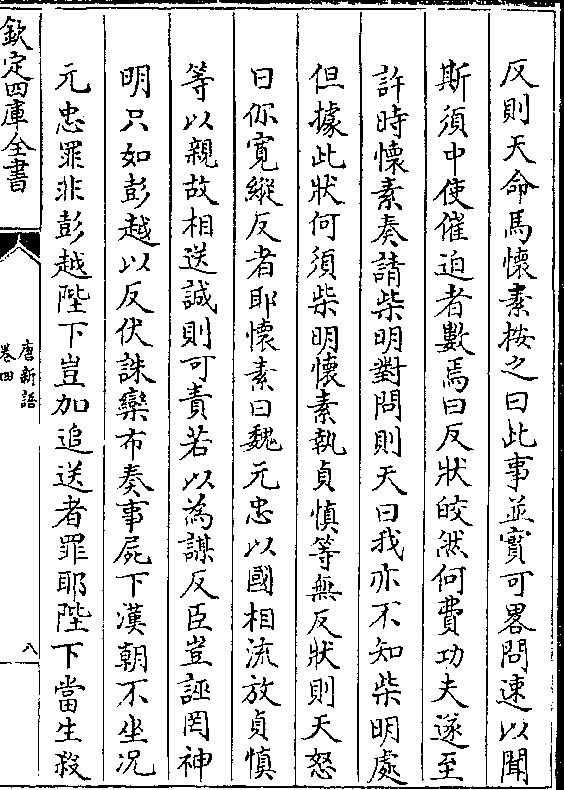 反則天命馬懷素按之曰此事並實可畧問速以聞
斯須中使催迫者數焉曰反狀皎然何費功夫遂至
許時懷素奏請柴明對問則天曰我亦不知柴明處
但據此狀何須柴明懷素執貞慎等無反狀則天怒
曰你寛縱反者耶懷素曰魏元忠以國相流放貞慎
等以親故相送誠則可責若以為謀反臣豈誣罔神
明只如彭越以反伏誅欒布奏事屍下漢朝不坐况
元忠罪非彭越陛下豈加追送者罪耶陛下當生殺
欽定四庫全書
唐新語
卷四
八